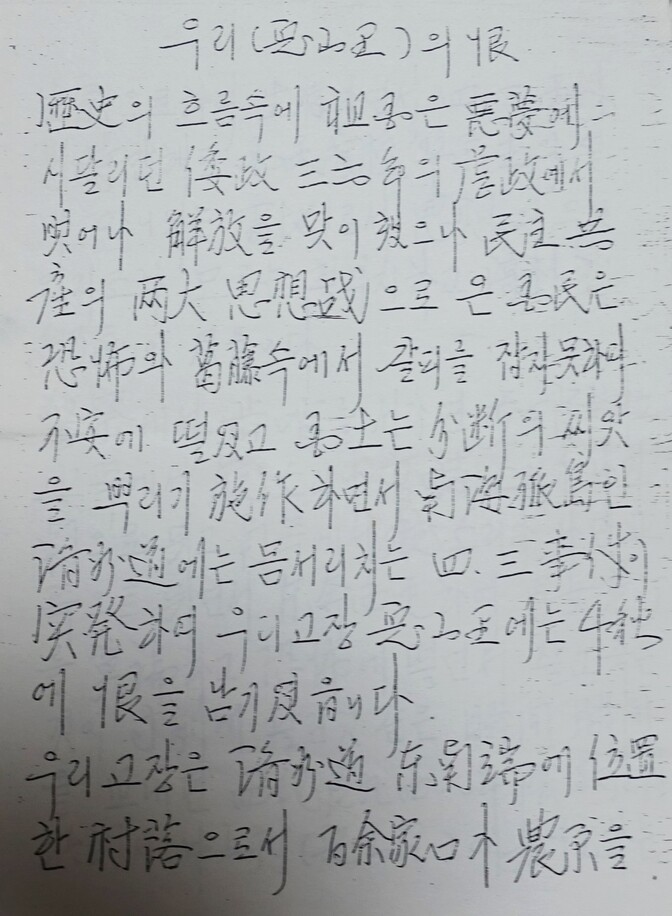 우리(思山里)의 恨
歷史의 흐름속에 祖国은 悪夢에
시달리던 倭政 三六年의 虐政에서
벗어나 解放을 맞이 했으나 民主 共
産의 兩大 思想戦으로 온 国民은
恐怖와 葛藤속에서 갈피를 잡지못하며
不安에 떨었고 国土는 分断의 씨앗
을 뿌리기 施作하면서 南海孤島인
濟州道에는 몸서리치는 四.三事件이
突発하며 우리고장 에는 千秋
에 恨을 남기였읍니다.
우리고장은 濟州道 东南端에 位置
한 村落으로서 百余家口가 農京을